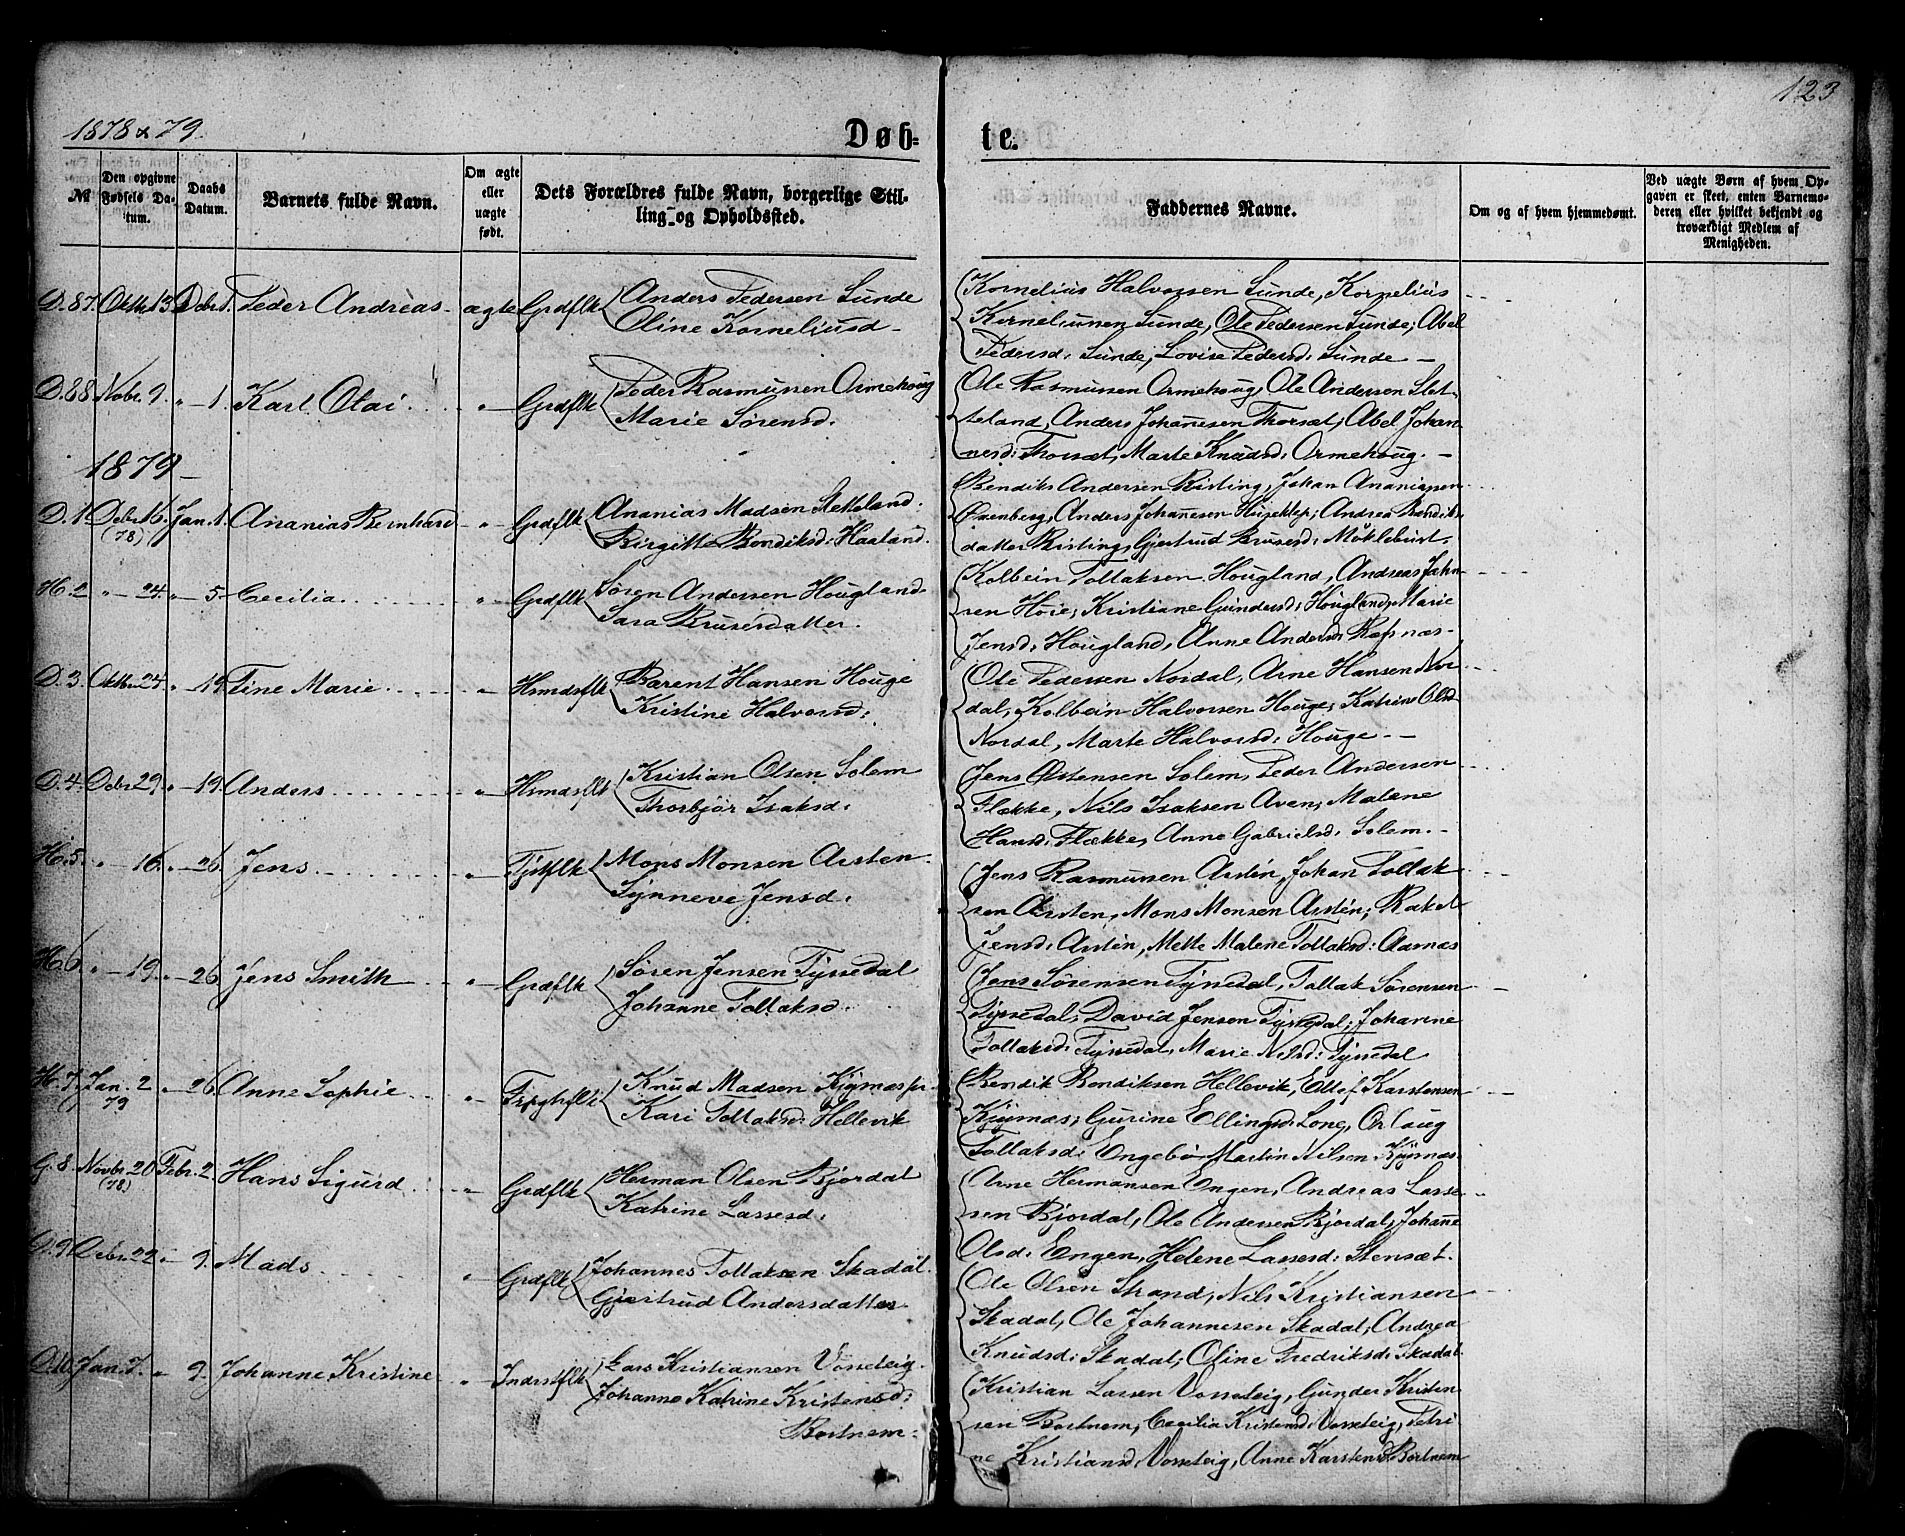 123
1878 & 79.
Døb-
te.
No
Den opgivne Fødsels Datum.
Daabs Datum.
Barnets fulde Navn.
Om ægte eller uægte født.
Dets Forældres fulde Navn, borgerlige Stilling og Opholdssted.
Faddernes Navne.
Om og af hvem hjemmedøbt.
Ved uægte Børn af hvem Opgaven er skeet, enten Barnemoderen eller hvilket bekjendt og troværdigt Medlem af Menigheden.
D. 87. Oktbr 13 Debr 1. Peder Andreas ægte Grdflk Anders Pedersen Sunde
Oline Korneliusd
Kornelius Halvorsen Sunde, Kornelius
Korneliusen Sunde, Ole Pedersen Sunde; Abel
Pedersd: Sunde, Lovise Pedersd: Sunde
D. 88 Nobr. 9. " 1. Karl Olai " Grdflk Peder Rasmussen Ormehoug
Marie Sørensd.
Ole Rasmussen Ormehoug, Ole Andersen Slet-
teland, Anders Johanesen Thorsæt; Abel Johan-
nesd: Thorsæt, Marte Knudsd: Ormehoug.
1879
D. 1 Debr 16. (78) Jan. 1. Ananias Bernhard " Grdflk Ananias Madsen Sletteland
Birgitte Bendiksd: Haaland.
Bendik Andersen Risting, Johan Ananiassen
Anders Johanesen Andrea Bendiks
datter Risting, Gjertrud Brusesd: Møklebust.
H. 2 " 24. " 5 Cecilia " Grdflk Søren Andersen Hougland
Sara Brusesdatter.
Kolbein Tollaksen Hougland, Andreas Jahn-
sen Høie; Kristiane Gundersd: Hougland, Marie
Jensd: Hougland, Anne Andersd: Refsnæs
D. 3. Oktbr 24 " 19 Tine Marie " Hsmdsflk Barent Hansen Houge
Kristine Halvorsd:
Ole Pedersen Nordal, Arne Hansen Nor-
dal, Kolbein Halvorsen Houge; Katrine Olsd
Nordal, Marte Halvorsd: Houge
D. 4. Debr 29. " 19. Anders " Hsmdsflk Kristian Olsen Solem
Thorbjør Isaksd:
Jens Østensen Solem, Peder Andersen
Flække, Nils Isaksen Aven; Malene
Hansd: Flække, Anne Gabrielsd: Solem.
H. 5. " 16. " 26 Jens " Mons Monsen Aasten
Synneve Jensd:
Jens Rasmussen Asten, Johan Tollak-
sen Aasten, Mons Monsen Asten; Rakel
Jensd: Asten, Mette Malene Tollaksd: Aarnæs
H. 6. " 19. " 26 Jens Smith " Grdflk Søren Jensen Tyssedal
Johanne Tollaksd.
Jens Sørensen Tyssedal, Tollak Sørensen
Tyssedal, David Jensen Tyssedal; Johanne
Tollaksd: Tyssedal, Marie Nilsd: Tyssedal
H. 7. Jan. 2 79 " 26. Anne Sophie " Knud Madsen
Kari Tollaksd: Hellevik
Bendik Bendiksen Hellevik, Karstensen
Gurine Ellingsd: Long,
Tollaksd: Engebø, Martin Nilsen
G. 8. Novbr. 20 (78) Febr. 2. Hans Sigurd " Grdflk Herman Olsen Bjordal
Katrine Lassesd:
Arne Hermansen Engen, Andreas Lasse-
sen Bjordal, Ole Andersen Bjordal; Johane
Olsd: Engen, Helene Lassesd: Stensæt.
G. 9. Debr. 22 " 9. Mads " Grdflk Johannes Tollaksen Skadal.
Gjertrud Andersdatter
Ole Olsen Strand, Nils Kristiansen
Skadal, Ole Johannesen Skadal; Andrea
Knudsd: Skadal, Oline Fredriksd: Skadal
O. 10. Jan. 7. " 9. Johanne Kristine " Indrstflk Lars Kristiansen Vosseteig.
Johanne Katrine Kristensd:
Bortnem
Kristian Lassen Vosseteig, Gunder Kristen-
sen Bortnem; Cecilia Kristensd: Vosseteig, Petri-
ne Kristiansd: Vosseteig, Anne Karstensd: Bortnem